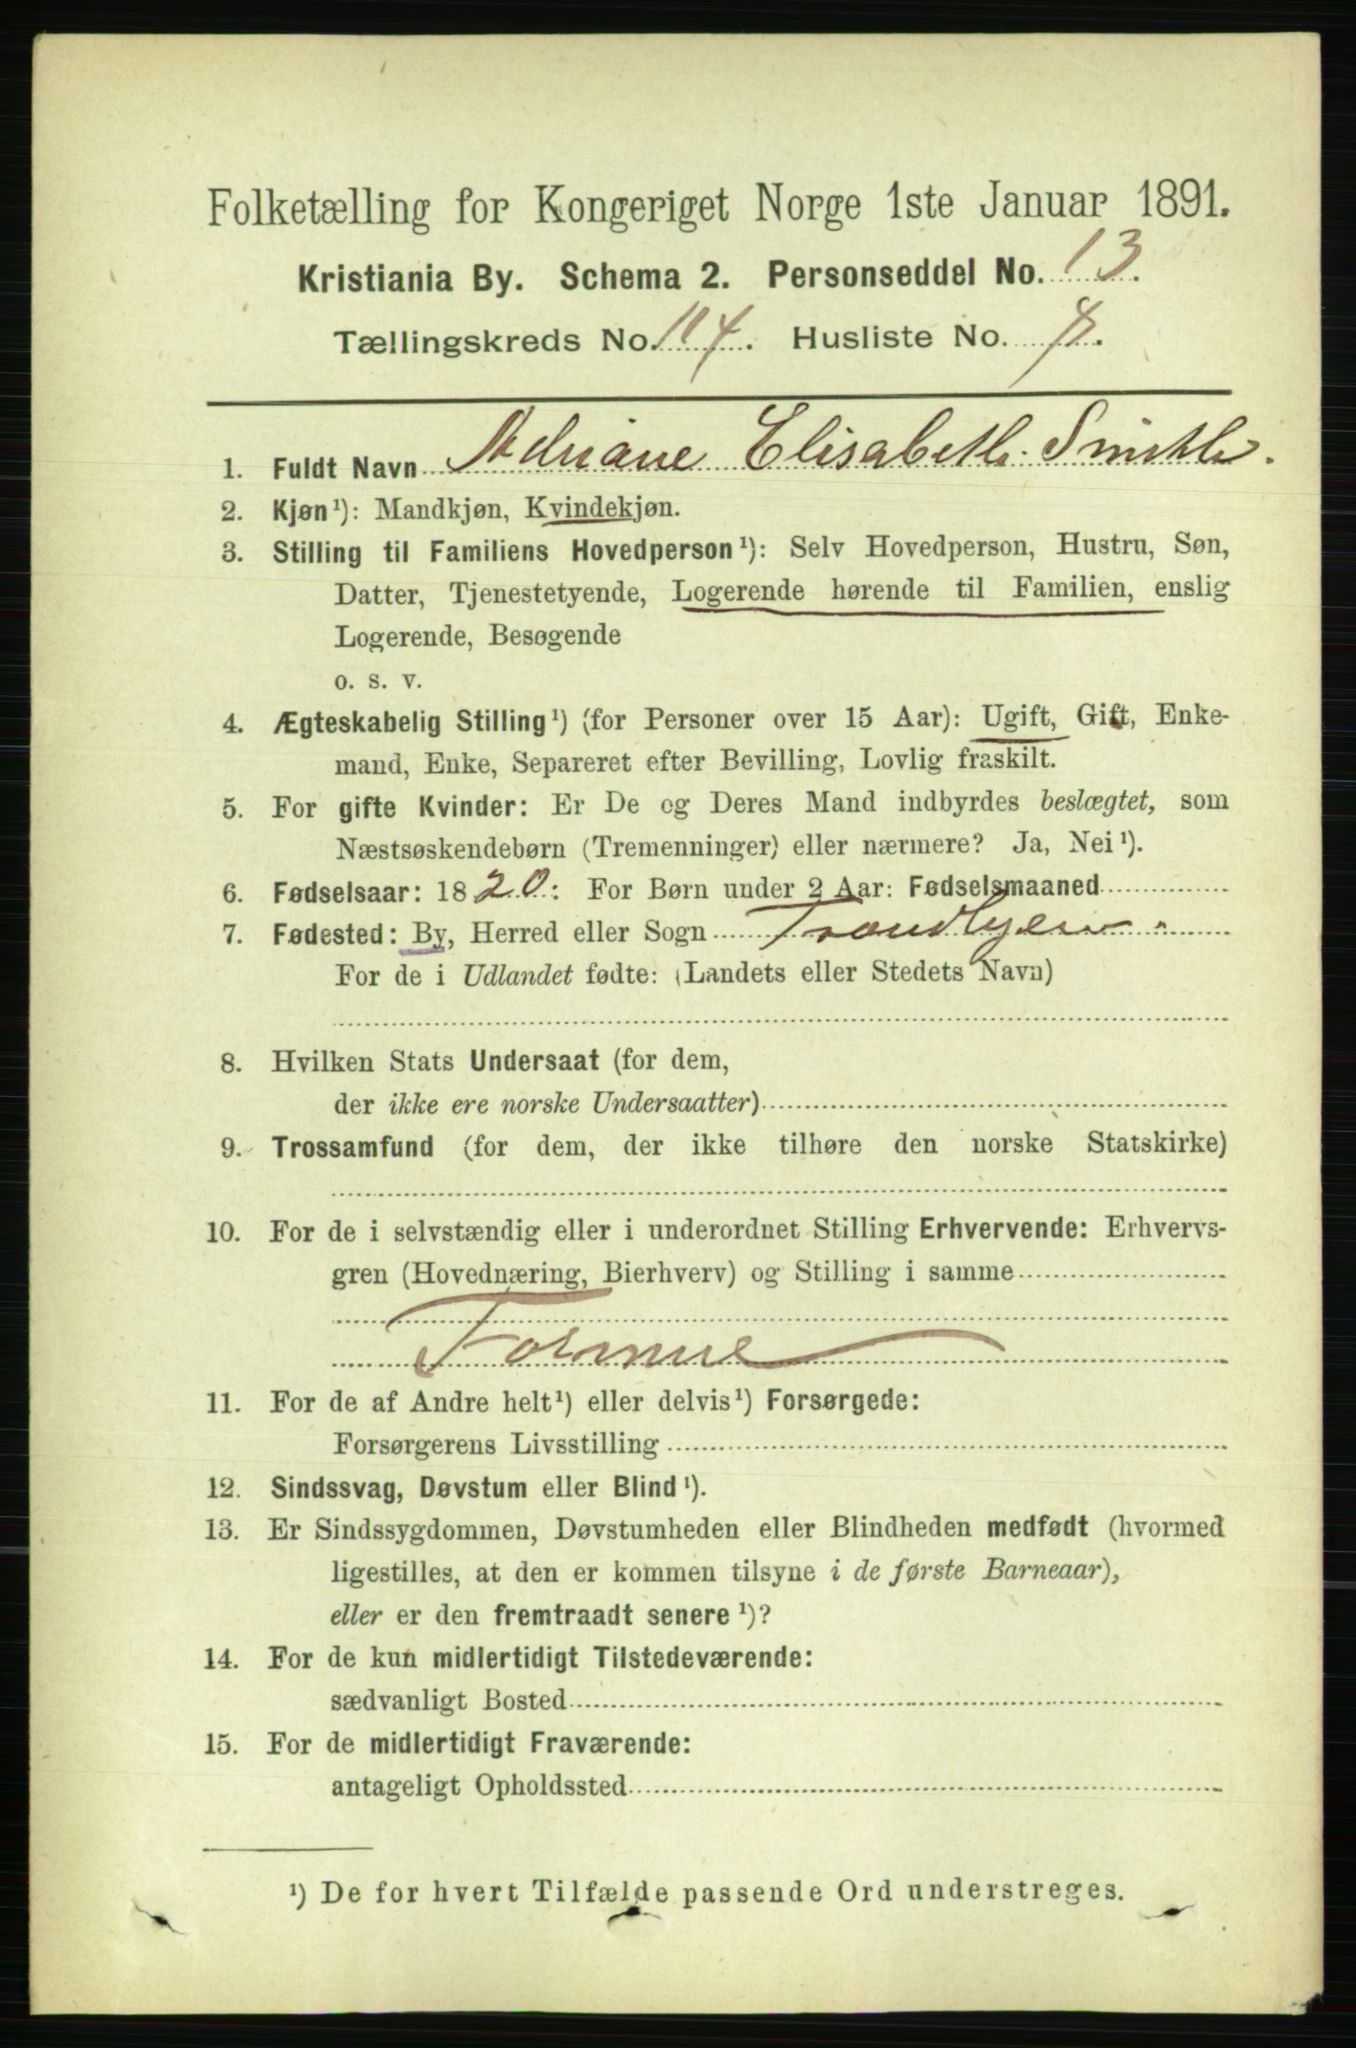 Folketælling for Kongeriget Norge 1ste Januar 1891.
Kristiania By. Schema 2. Personseddel No. 13.
Tællingskreds No. 114. Husliste No. 8.
1. Fuldt Navn Adriane Elisabeth Smith.
2. Kjøn¹): Mandkjøn, Kvindekjøn.
3. Stilling til Familiens Hovedperson¹): Selv Hovedperson, Hustru, Søn,
Datter, Tjenestetyende, Logerende hørende til Familien, enslig
Logerende, Besøgende
o. s. v.
4. Ægteskabelig Stilling¹) (for Personer over 15 Aar): Ugift, Gift, Enke-
mand, Enke, Separeret efter Bevilling, Lovlig fraskilt.
5. For gifte Kvinder: Er De og Deres Mand indbyrdes beslægtet, som
Næstsøskendebørn (Tremenninger) eller nærmere? Ja, Nei¹).
6. Fødselsaar: 1820: For Børn under 2 Aar: Fødselsmaaned
7. Fødested: By, Herred eller Sogn Trondhjem
For de i Udlandet fødte: (Landets eller Stedets Navn)
8. Hvilken Stats Undersaat (for dem,
der ikke ere norske Undersaatter)
9. Trossamfund (for dem, der ikke tilhøre den norske Statskirke)
10. For de i selvstændig eller i underordnet Stilling Erhvervende: Erhvervs-
gren (Hovednæring, Bierhverv) og Stilling i samme
Formue
11. For de af Andre helt¹) eller delvis¹) Forsørgede:
Forsørgerens Livsstilling
12. Sindssvag, Døvstum eller Blind¹).
13. Er Sindssygdommen, Døvstumheden eller Blindheden medfødt (hvormed
ligestilles, at den er kommen tilsyne i de første Barneaar),
eller er den fremtraadt senere¹)?
14. For de kun midlertidigt Tilstedeværende:
sædvanligt Bosted
15. For de midlertidigt Fraværende:
antageligt Opholdssted
¹) De for hvert Tilfælde passende Ord understreges.